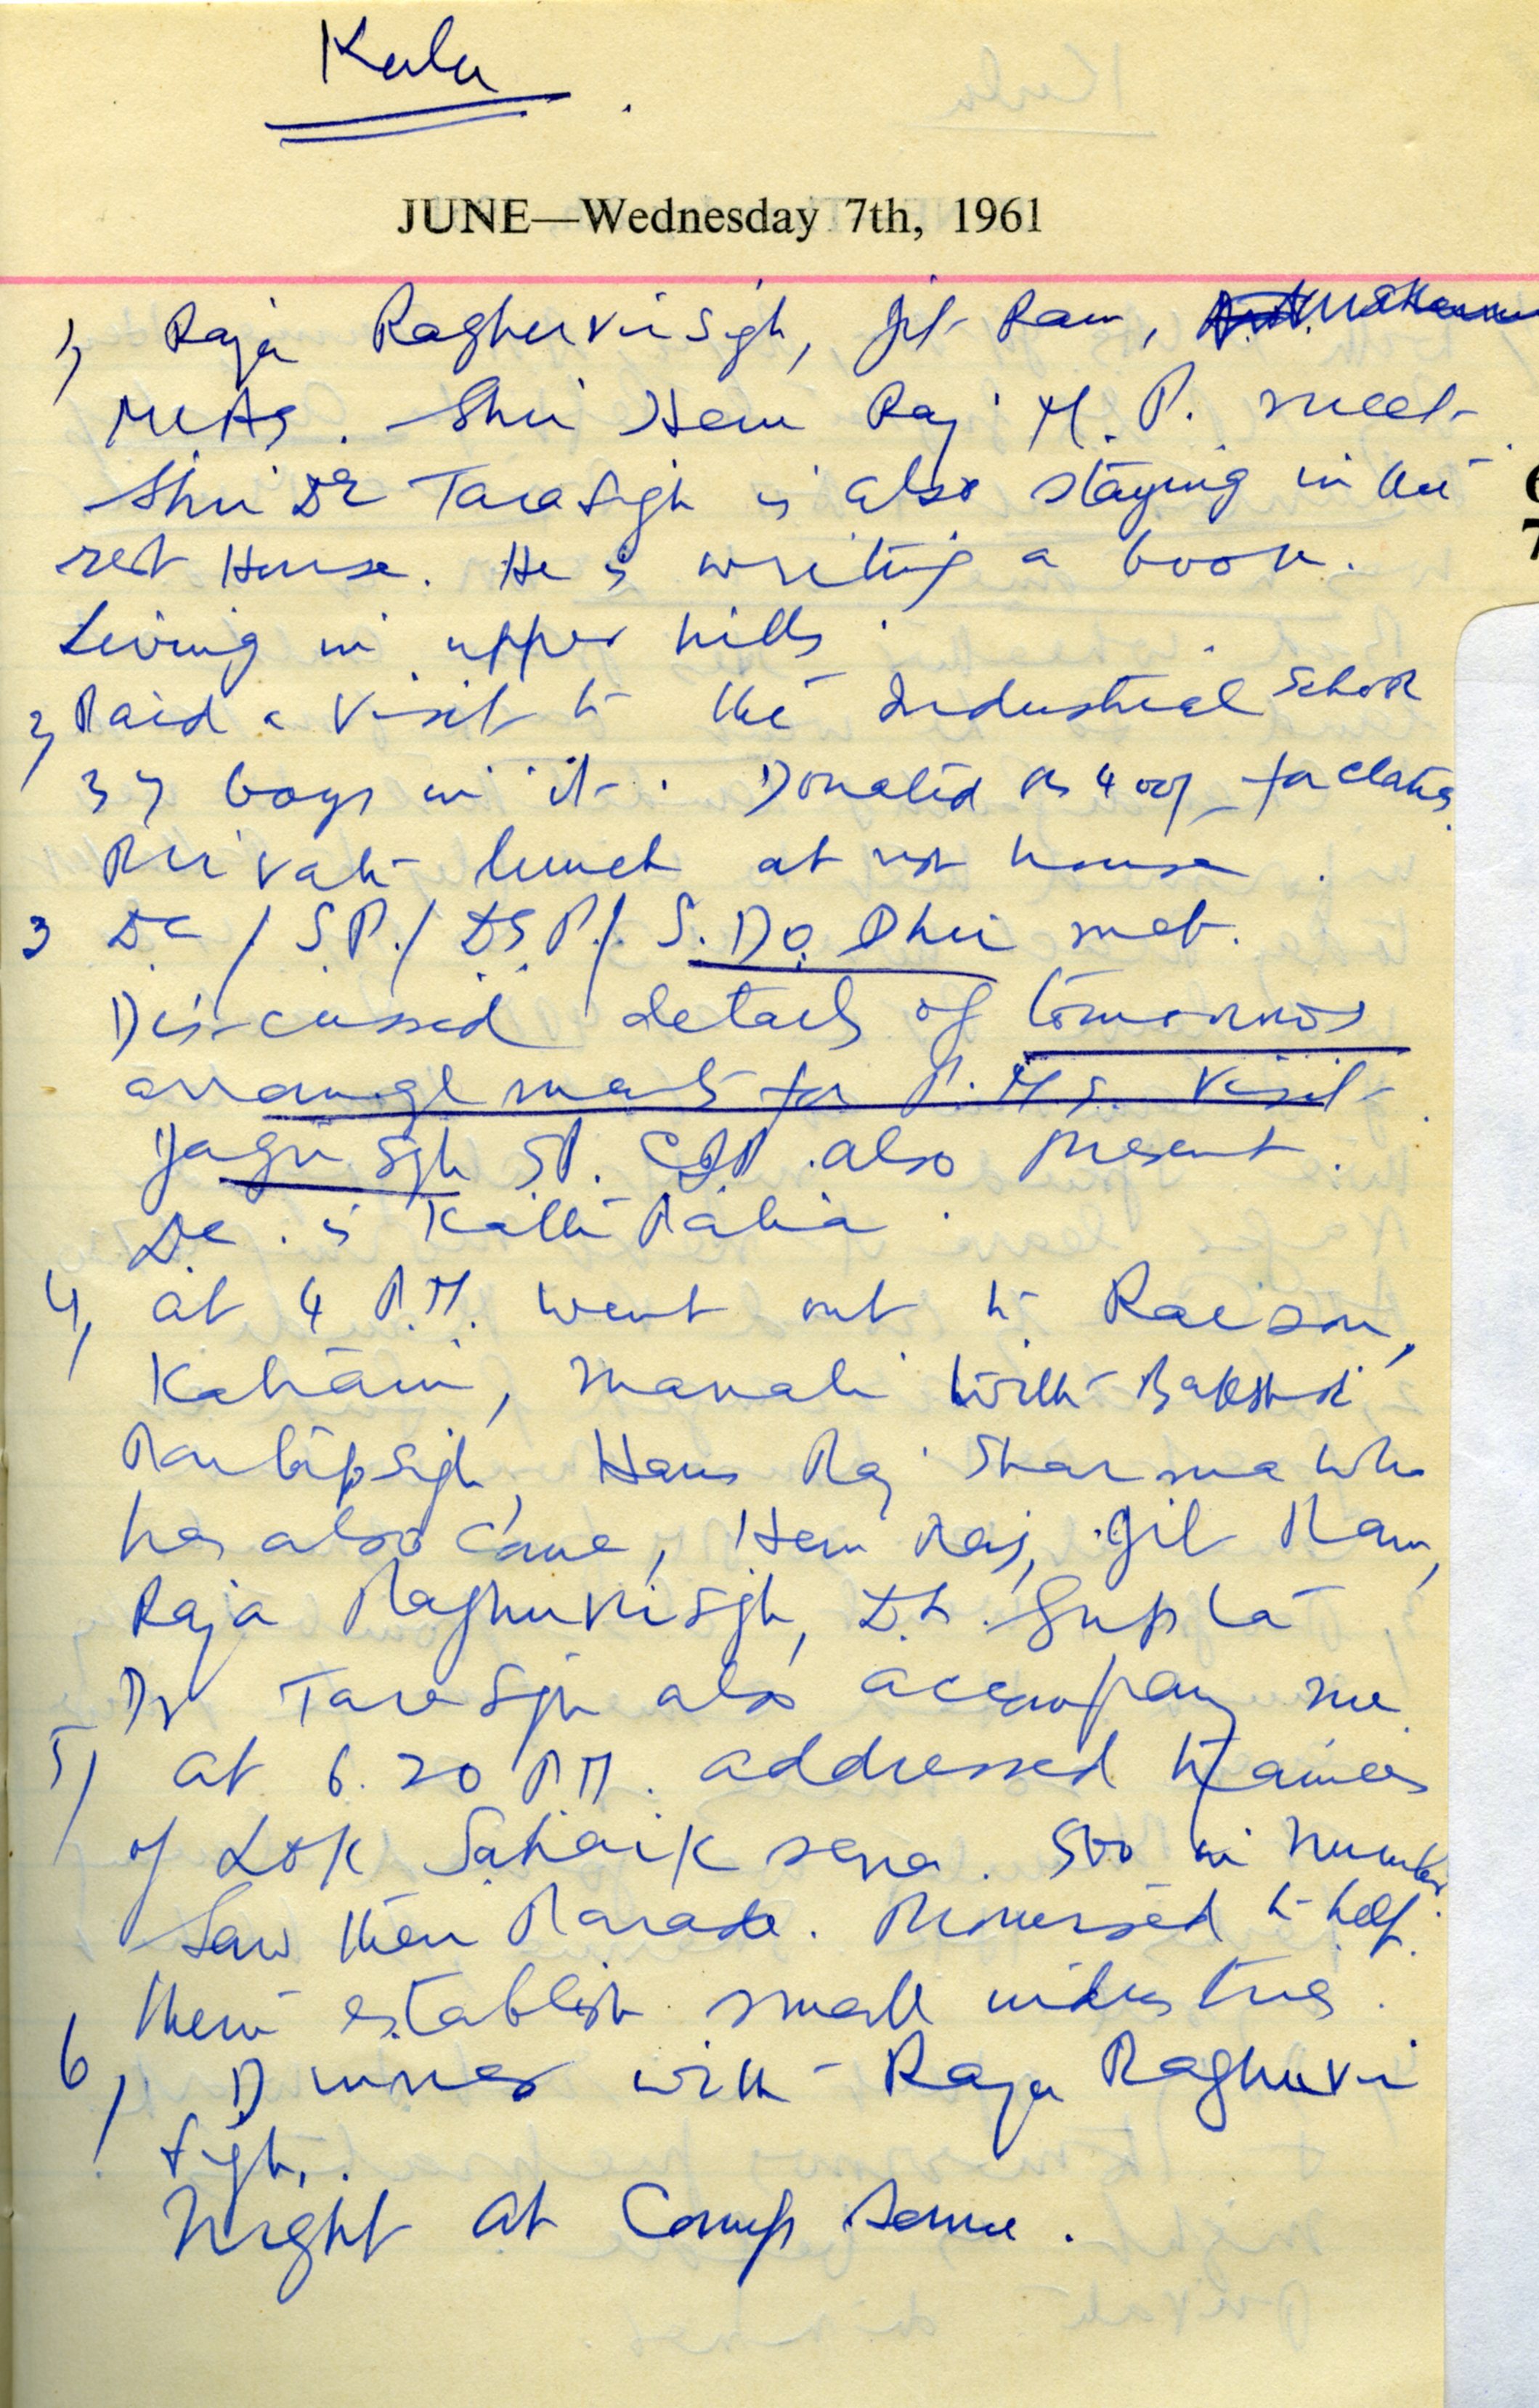 Kulu
JUNE—Wednesday 7th, 1961
1, Raja Raghuvir Sigh, Jit Ram,
MLAs. Shri Hem Raj M.P. meet
Shri Dr Tara Sigh is also staying in the
rest House. He is writing a book.
Living in upper hills.
2, Paid a visit to the Industrial School
37 boys in it. Donated Rs 400/- for
Private lunch at rest house.
3 DC / S.P. / DS.P. / S.DO. Dhri met.
Discussed details of tomorrows
arrangements for P.M's. Visit
Sgh SP. CID. also present.
DC. is
4, at 4 P.M. went out to Raison,
Katrain, Manali with Bakshi
Partap Sigh, Hans Raj Sharma who
has also come, Hem Raj, Jit Ram,
Raja Raghuvir Sgh, Gupta
Dr Tara Sgh also accompany me.
5/ at 6.20 P.M. addressed trainees
of Lok Sahaik sena. 500 in number
Saw their Parade. Promised to help.
them establish small industries.
6/ Dinner with Raja Raghuvir
Sigh.
Night at Camp same.
6
7